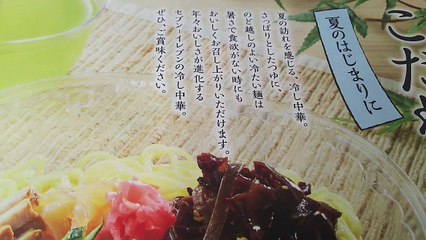 こだわ
夏のはじまりに
夏の訪れを感じる、冷し中華。
さっぱりとしたつゆに、
のど越しのよい冷たい麺は
暑さで食欲がない時にも
おいしくお召し上がりいただけます。
年々おいしさが進化する
セブン‐イレブンの冷し中華。
ぜひ、ご賞味ください。